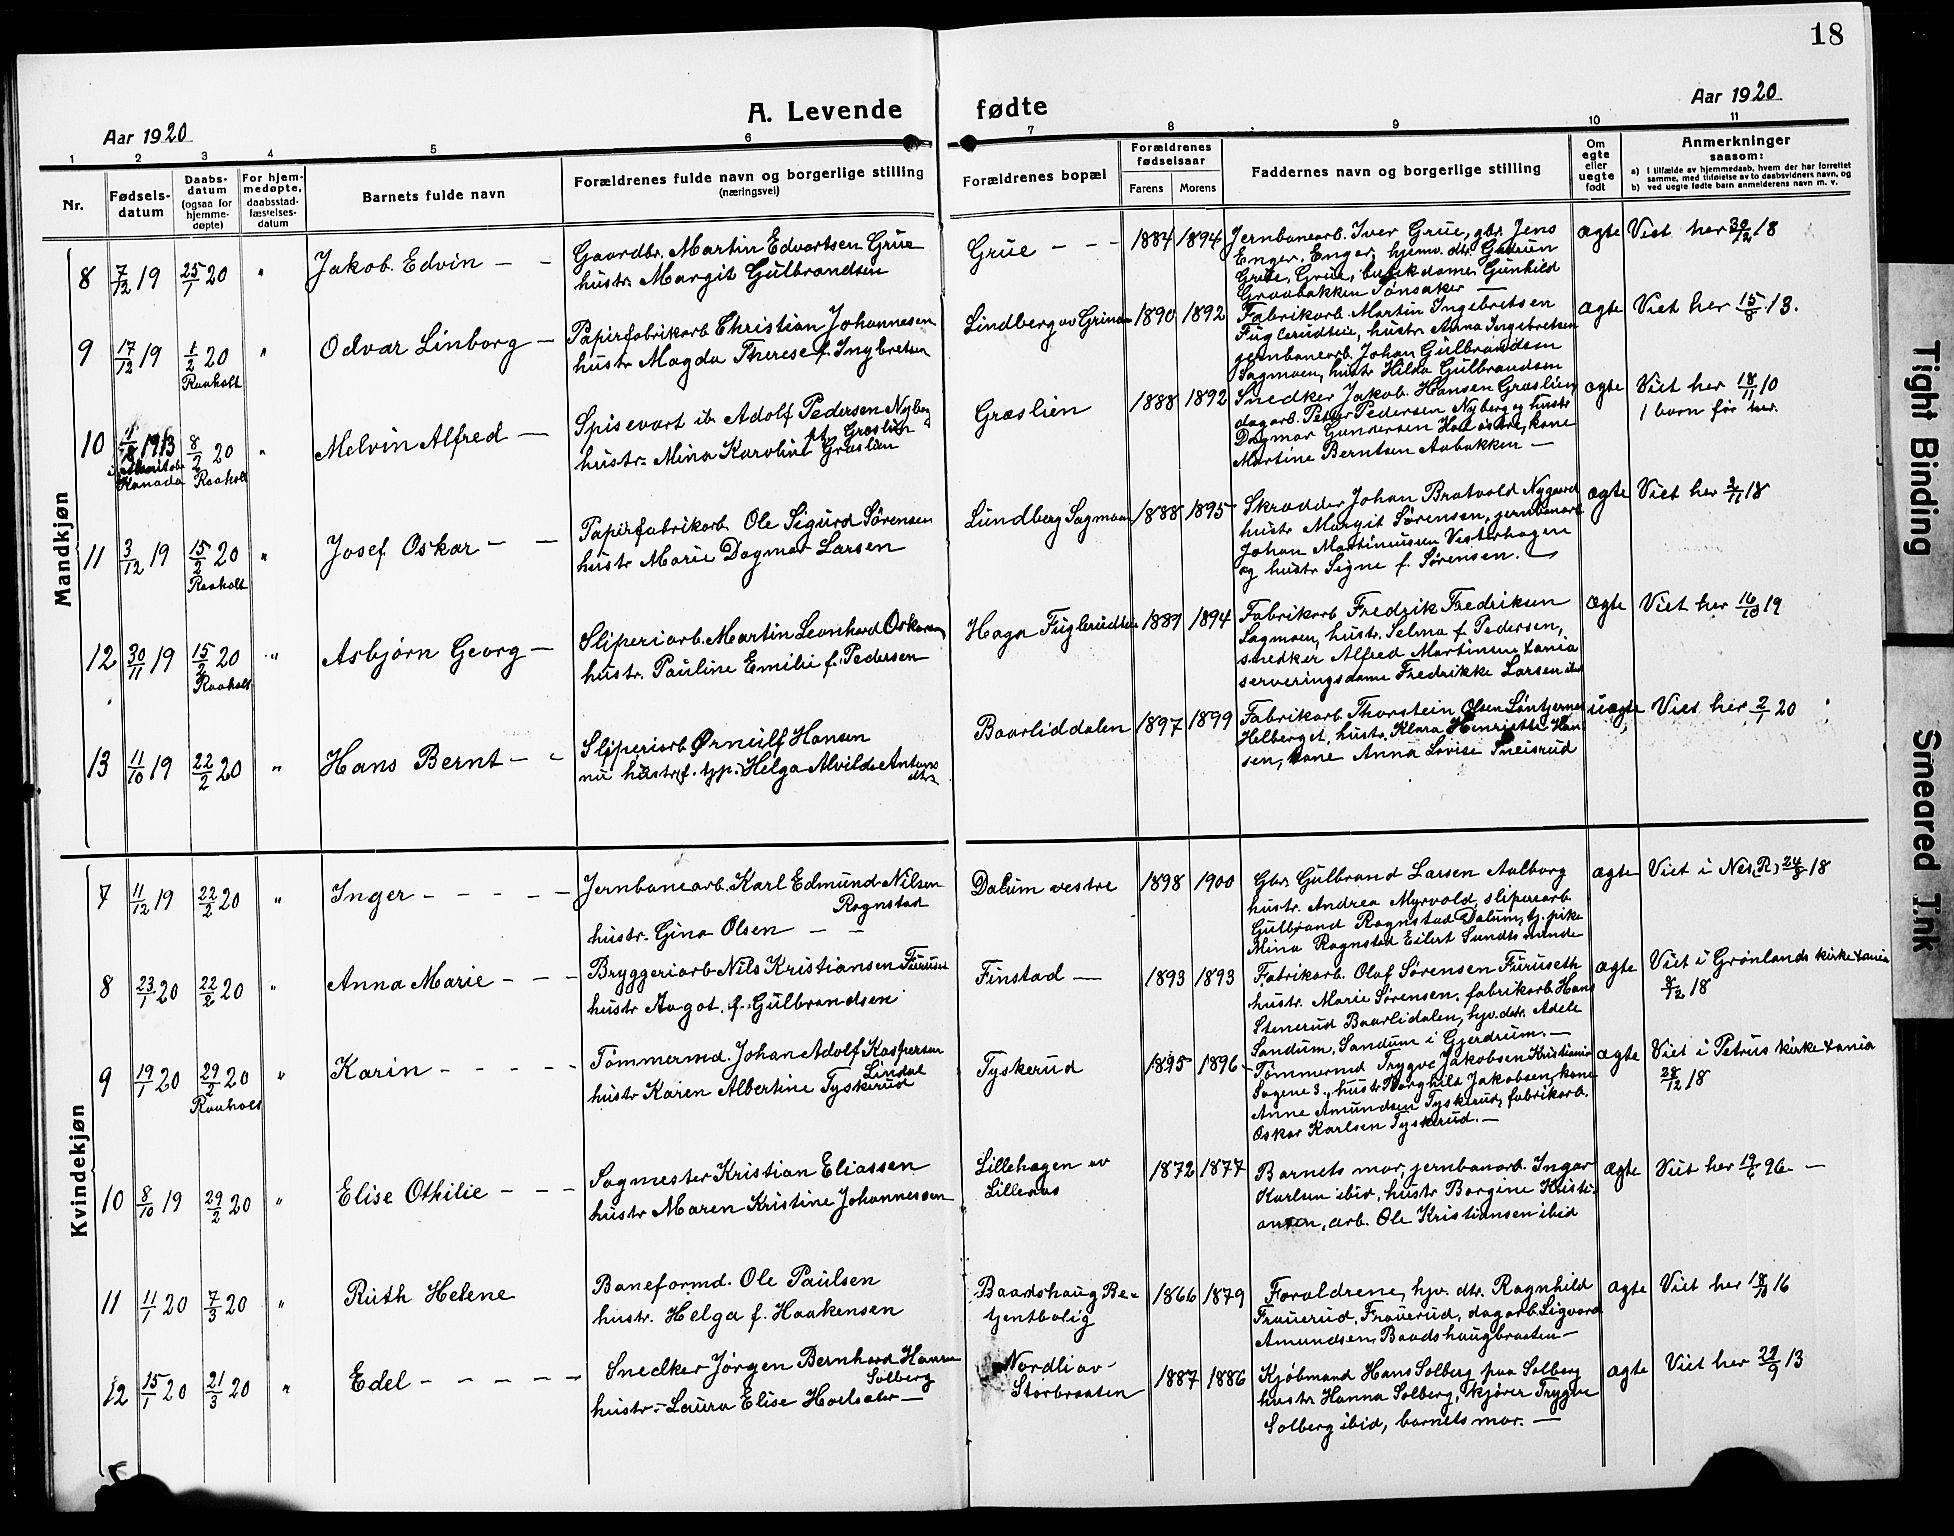 18
A. Levende fødte
Aar 1920
Aar 1920
1 2 3 4 5 6 7 8 9 10 11
Nr.
Fødsels-
datum
Daabs-
datum
(ogsaa for
hjemme-
døpte)
For hjem-
medøpte,
daabsstad-
fæstelses-
datum
Barnets fulde navn
Forældrenes fulde navn og borgerlige stilling
(næringsvei)
Forældrenes bopæl
Forældrenes
fødselsaar
Farens Morens
Faddernes navn og borgerlige stilling
Om
egte
eller
uegte
født
Anmerkninger
saasom:
a) i tilfælde av hjemmedaab, hvem der har forrettet
samme, med tilføielse av to daabsvidners navn, og
b) ved uegte fødte barn anmelderens navn m. v.
Mandkjøn
8 7/12 19 25/1 20 " Jakob Edvin - -
Gaardbr. Martin Edvartsen Grue
hustr. Margit Gulbrandsen
Grue - - -
1884 1894
Jernbanearb. Iver Grue, gbr. Jens
Enger, Enger, hjemv. dtr. Gudrun
Grue, Grue, butikdame Gunhild
Graabakken Tønsaker —
ægte
Viet her 30/12 18
9 17/12 19 1/2 20 " Odvar Linborg -
Raaholt
Papirfabrikarb Christian Johannesen
hustr. Magda Therese f. Ingbretsen
Lindberg av Grina
1890 1892
Fabrikarb. Martin Ingebretsen
Fuglerudteie, hustr. Anna Ingebretsen
jernbanearb. Johan Gulbrandsen
Sagmoen, hustr Hilda Gulbrandsen
ægte
Viet her 15/8 13.
10 1913 8/2 20 " Melvin Alfred —
Kanada Raaholt
Spisevært ib Adolf Pedersen Nyberg
pt. Græslien
hustr. Mina Karoline Græslien
Græslien
1888 1892
Snedker Jakob Hansen Græslien,
dagarb. Peder Pedersen Nyberg og hustr
Dagmar Gundersen østre, kone
Martine Berntsen Aabakken —
ægte
Viet her 18/11 10
1 barn før her.
11 3/12 19 15/2 20 " Josef Oskar - -
Raaholt
Papirfabrikarb. Ole Sigurd Sørensen
hustr Marie Dagmar Larsen
Lundberg Sagmoen
1888 1895
Skrædder Johan Bratvold Nygaard
hustr Margit Sørensen, jernbanearb
Johan Martinussen Vesterhagen
og hustr Signe f. Sørensen. —
ægte
Viet her 3/11 18
12 30/11 19 15/2 20 " Asbjørn Georg -
Raaholt
Sliperiarb. Martin Leonhard Oskarsen
hustr. Pauline Emilie f. Pedersen
Haga Fuglerudteie
1889 1894
Fabrikarb Fredrik Fredriksen
Sagmoen, hustr. Selma f. Pedersen,
snedker Alfred Martinsen Xania
serveringsdame Fredrikke Larsen ibid
ægte
Viet her 16/10 19
13 11/10 19 22/2 20 " Hans Bernt - -
Sliperiarb Ørnulf Hansen
nu hustr (f. typ.) Helga Alvilde Antons
dtr
Baarliddalen
1897 1899
Fabrikarb. Thorstein Olsen
Helberget, hustr. Klara Henriette Han
sen, kone Anna Lovise Sneisrud
uægte,
Viet her 2/1 20
Kvindekjøn
7 11/12 19 22/2 20 " Inger - - - - -
Jernbanearb. Karl Edmund Nilsen
Rognstad
hustr. Gina Olsen - -
Dalum vestre
1898 1900
Gbr. Gulbrand Larsen Aalborg
hustr. Andrea Myrvold, sliperiarb
Gulbrand Rognstad Dalum, tj. pike
Mina Rognstad Eilert Sundts minde
ægte
Viet i Nes (R) 24/8 18
8 23/1 20 22/2 20 " Anna Marie - - -
Bryggeriarb Nils Kristiansen Furuset
hustr Aagot f. Gulbrandsen
Finstad —
1893 1893
Fabrikarb. Olaf Sørensen Furuseth
hustr. Marie Sørensen, fabrikarb Hans
Stenerud Baarlidalen, hjv. dtr. Adele
Sandum, Sandum i Gjerdrum. —
ægte
Viet i Grønlands kirke Xania
8/12 18
9 19/1 20 29/2 20 " Karin - - - - -
Raaholt
Tømmermd. Johan Adolf Kaspersen
Lindal
hustr Karen Albertine Tyskerud
Tyskerud
1895 1896
Tømmermd Trygve Jakobsen Kristiania
Sogene 3., hustr Borghild Jakobsen, kone
Anne Amundsen Tyskerud, fabrikarb.
Oskar Karlsen Tyskerud. —
ægte
Viet i Petrus kirke Xania
28/12 18
10 8/10 19 29/2 20 " Elise Othilie - - -
Sagmester Kristian Eliassen
hustr Maren Kristine Johannessen
Lillehagen av
Lillenas
1872 1877
Barnets mor, jernbanearb. Ingar
Karlsen ibid, hustr Borgine Kristi-
ansen, arb. Ole Kristiansen ibid
ægte
Viet her 19/6 96 —
11 11/1 20 7/3 20 " Ruth Helene
Baneformd. Ole Paulsen
hustr. Helga f. Haakensen
Baardshaug Be-
tjentbolig
1866 1879
Forældrene, hjv. dtr. Ragnhild
Frauerud, Frauerud, dagarb. Sigvard
Amundsen, Baadshaugbraaten —
ægte
Viet her 18/10 16
12 15/1 20 21/3 20 " Edel - - - - -
Snedker Jørgen Bernhard Hansen
Solberg
hustr. Laura Elise Hovlsæter —
Nordli av
Storbraaten
1887 1886
Kjøbmand Hans Solberg paa Solberg
hustr Hanna Solberg, kjører Trygve
Solberg ibid, barnets mor. —
ægte
Viet her 22/9 13
Tight Binding
Smeared Ink